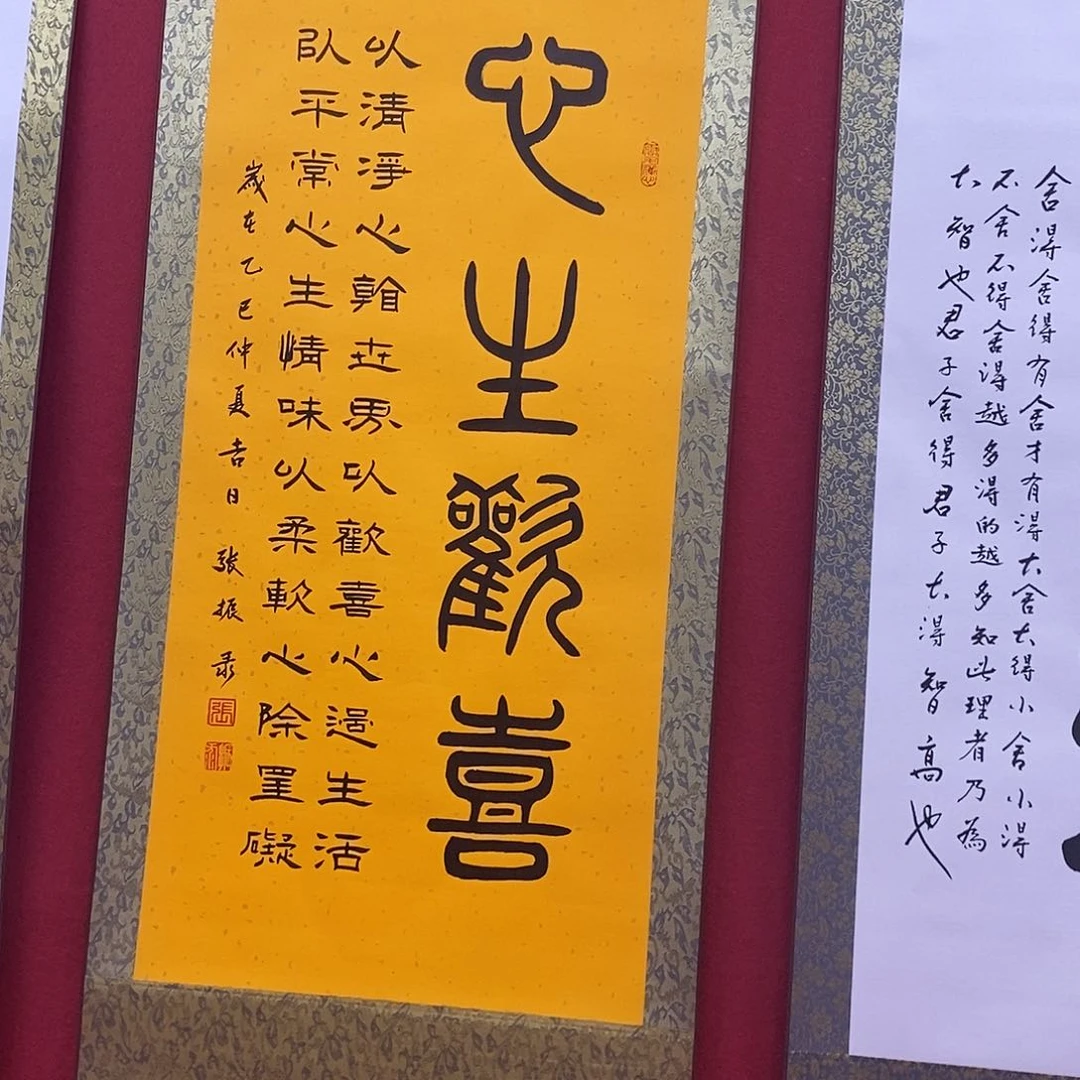 舍得舍得有舍才有得大舍大得小舍小得
不舍不得舍得越多得的越多知此理者乃為
大智也君子舍得君子大得智高也
心生歡喜
以清淨心看世界以歡喜心過生活
以平常心生情味以柔軟心除罣礙
歲在乙巳仲夏吉日 張振录
張